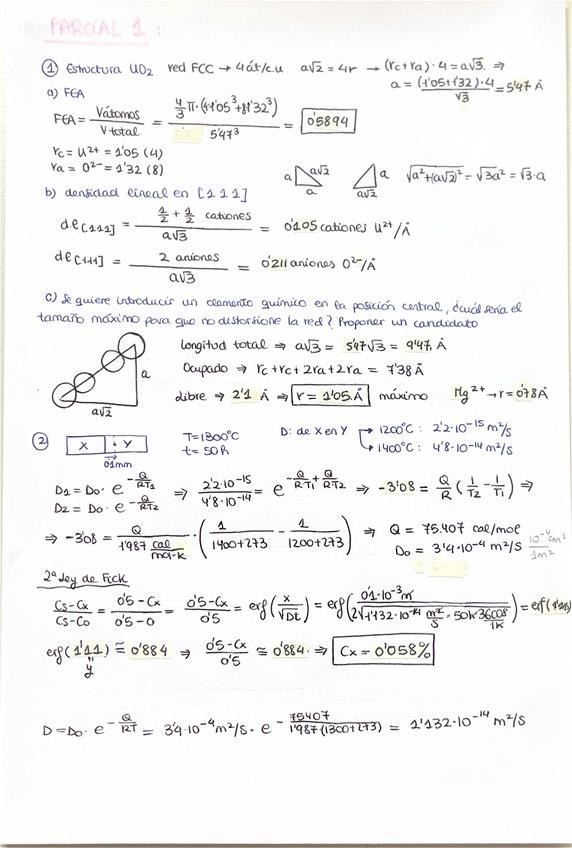 PARCIAL 1 :
① Estructura UO₂ red FCC → 4át/c.u a√2 = 4r → (rc+ra)·4 = a√3 ⇒
a = (1'05+1'32)·4 / √3 = 5'47 Å
a) FEA
FEA = Vátomos / Vtotal = 4/3 π·(4·1'05³+8·1'32³) / 5'47³ = 0'5894
rc = U⁴⁺ = 1'05 (4)
ra = O²⁻ = 1'32 (8)
a a√2 a
a a√2
√a²+(a√2)² = √3a² = √3·a
b) densidad lineal en [111]
de[111] = 1/2 + 1/2 cationes / a√3 = 0'105 cationes U⁴⁺/Å
de[111] = 2 aniones / a√3 = 0'211 aniones O²⁻/Å
c) Se quiere introducir un elemento químico en la posición central, ¿cuál sería el
tamaño máximo para que no distorsione la red? Proponer un candidato
a
a√2
longitud total ⇒ a√3 = 5'47√3 = 9'47 Å
Ocupado ⇒ rc+rc+2ra+2ra = 7'38 Å
libre ⇒ 2'1 Å ⇒ r = 1'05 Å máximo Mg²⁺→ r = 0'78 Å
② X Y
0'1mm
T=1300°C
t= 50h
D: de X en Y → 1200°C : 2'2·10⁻¹⁵ m²/s
→ 1400°C : 4'8·10⁻¹⁴ m²/s
D₁ = Do · e^-Q/RT₁
D₂ = Do · e^-Q/RT₂
⇒ 2'2·10⁻¹⁵ / 4'8·10⁻¹⁴ = e^-Q/RT₁ + Q/RT₂ ⇒ -3'08 = Q/R (1/T₂ - 1/T₁) ⇒
⇒ -3'08 = Q / 1'987 cal/mol·k · (1/1400+273 - 1/1200+273) ⇒ Q = 75.407 cal/mol
Do = 3'4·10⁻⁴ m²/s
2ª ley de Fick
Cs-Cx / Cs-Co = 0'5-Cx / 0'5-0 = 0'5-Cx / 0'5 = erf(x/√Dt) = erf(0'1·10⁻³m / 2√1'132·10⁻¹⁴ m²/s · 50h · 3600s/1h) =
erf(1'11) ≅ 0'884 ⇒ 0'5-Cx / 0'5 ≅ 0'884 ⇒ Cx = 0'058%
y
D = Do · e^-Q/RT = 3'4·10⁻⁴ m²/s · e^-75407/1'987(1300+273) = 1'132·10⁻¹⁴ m²/s